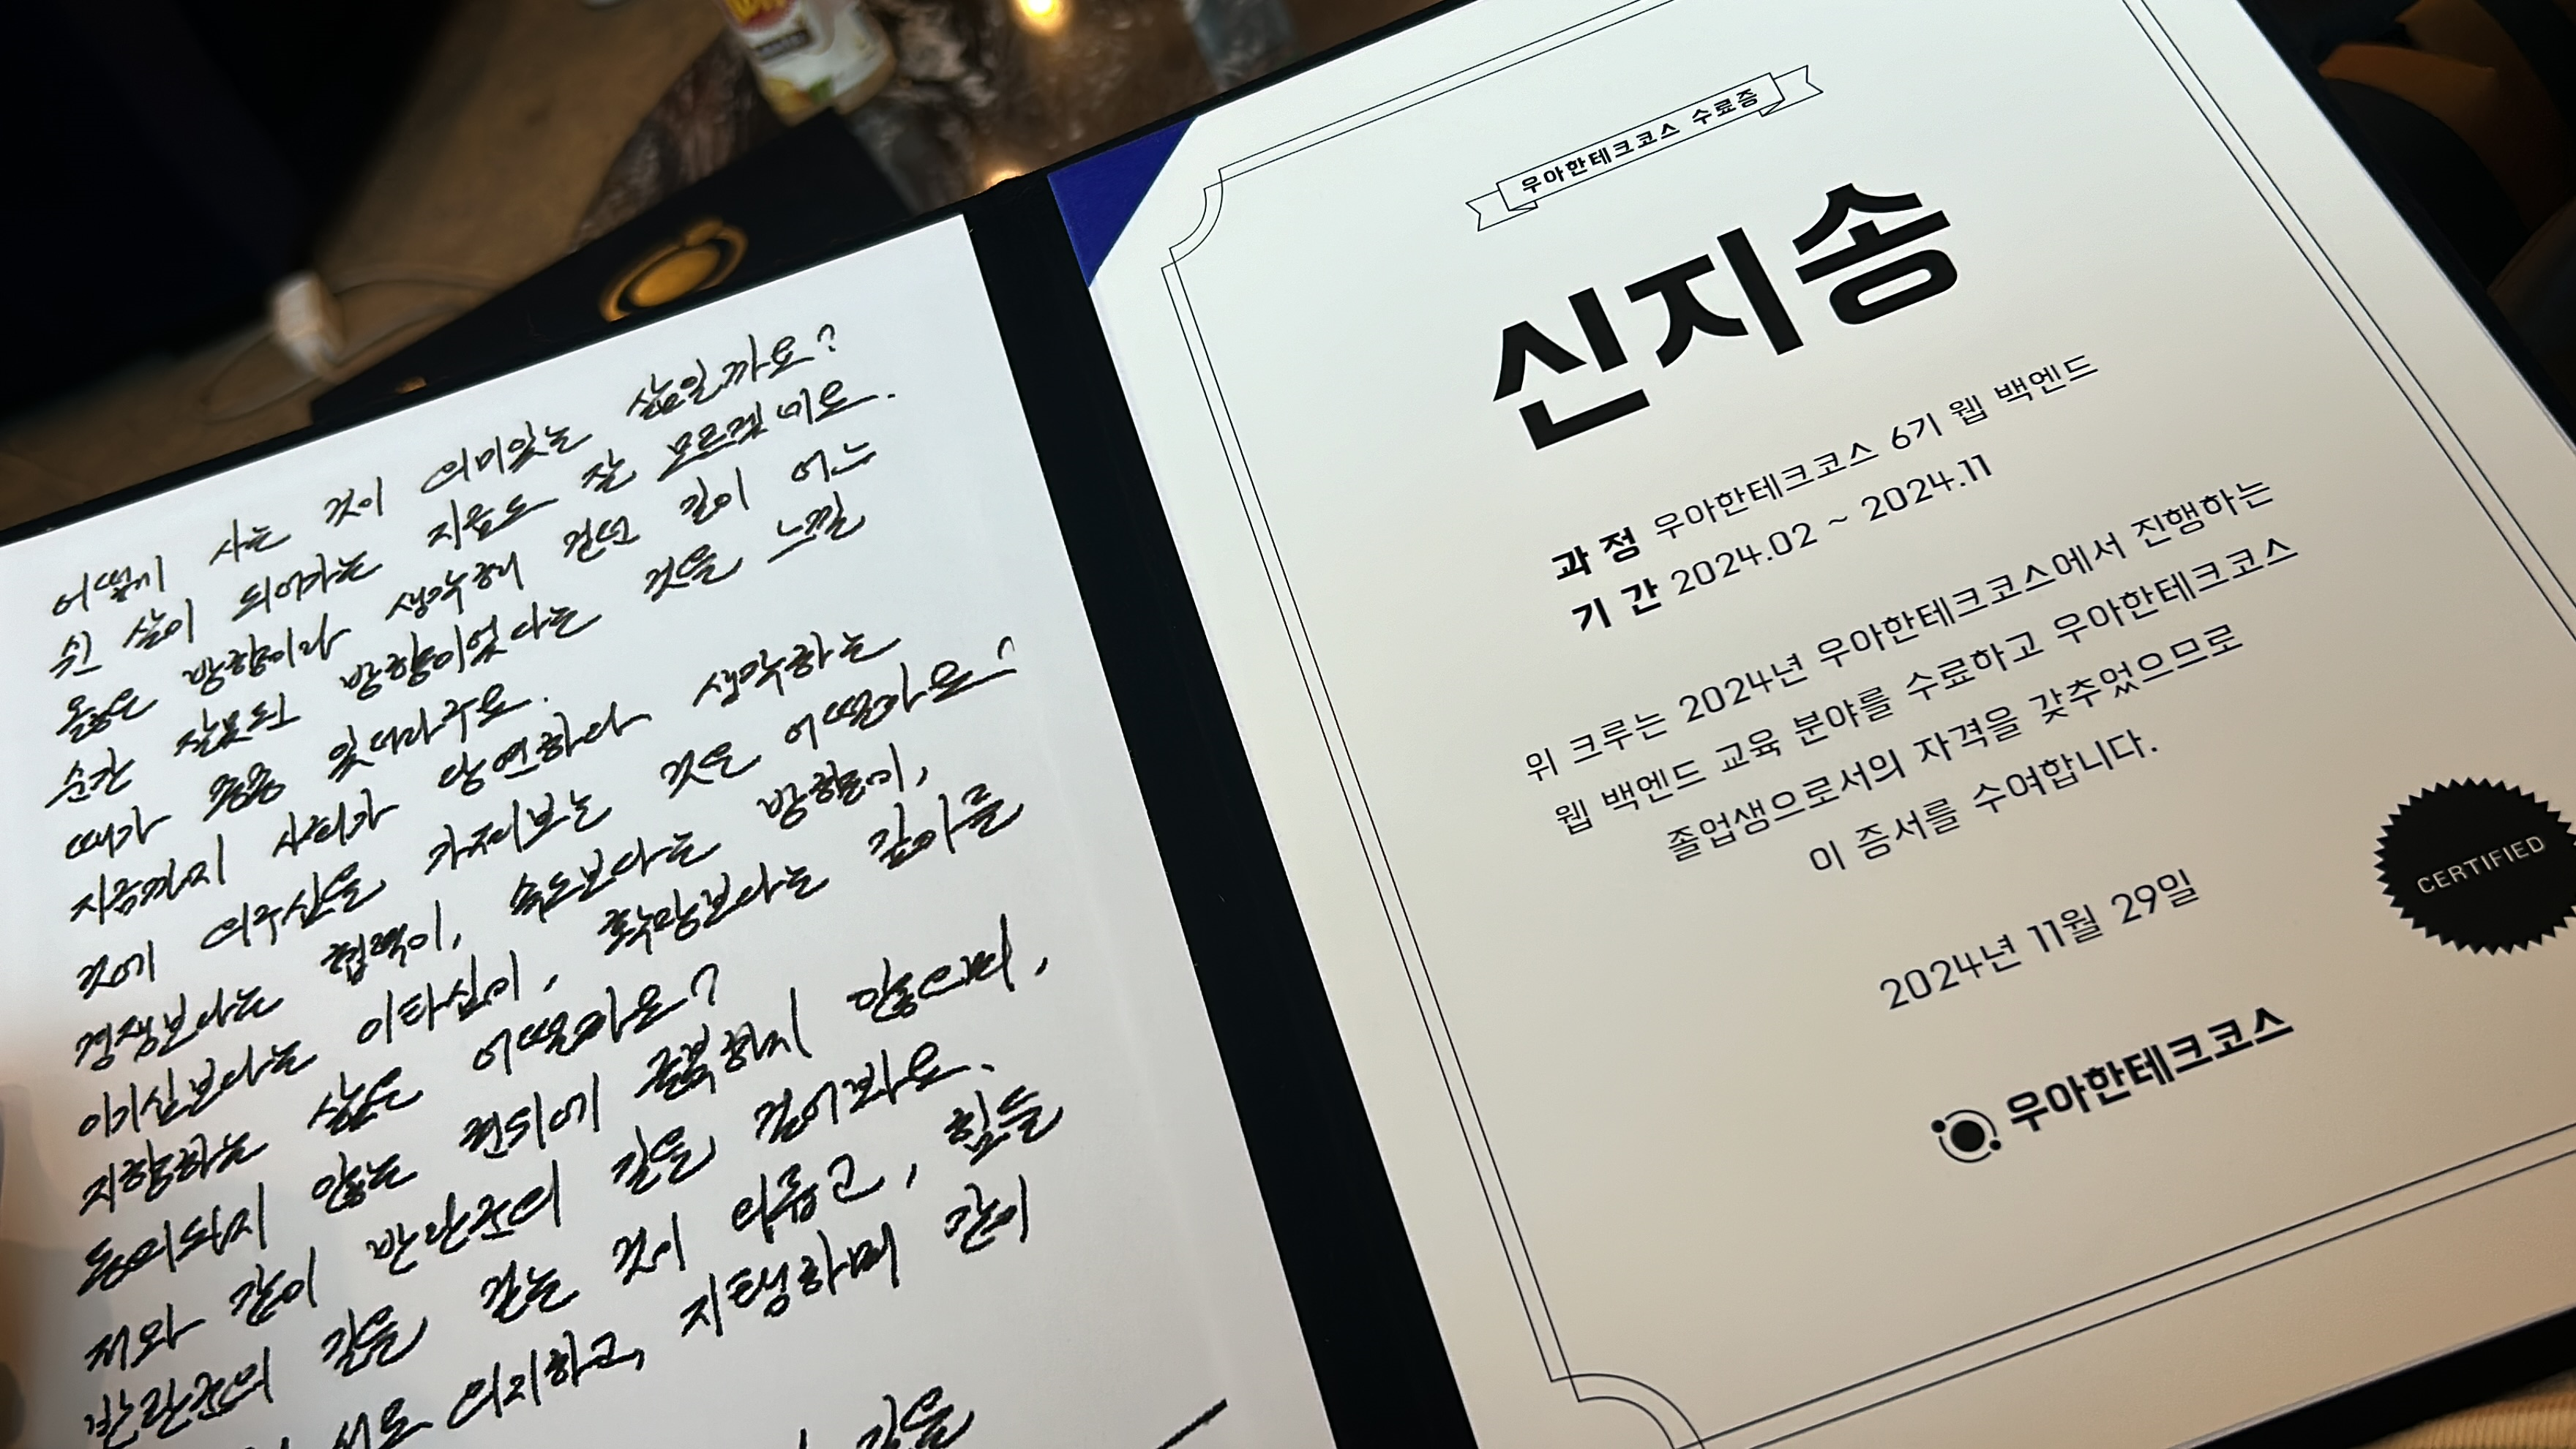 어떻게 사는 것이 의미있는 삶일까요?
쉰 살이 되어가는 지금도 잘 모르겠어요.
옳은 방향이라 생각해 걷던 길이 어느
순간 잘못된 방향이었다는 것을 느낄
때가 종종 있더라구요.
지금까지 사회가 당연하다 생각하는
것에 의구심을 가져보는 것은 어떨까요?
경쟁보다는 협력이, 속도보다는 방향이,
이기심보다는 이타심이, 확장보다는 깊이를
지향하는 삶은 어떨까요?
동의되지 않는 권위에 굴복하지 않으며,
저와 같이 반란군의 길을 걸어봐요.
반란군의 길을 걷는 것이 외롭고, 힘들
서로 의지하고, 지탱하며 같이
길을
우아한테크코스 수료증
신지송
과 정 우아한테크코스 6기 웹 백엔드
기 간 2024.02 ~ 2024.11
위 크루는 2024년 우아한테크코스에서 진행하는
웹 백엔드 교육 분야를 수료하고 우아한테크코스
졸업생으로서의 자격을 갖추었으므로
이 증서를 수여합니다.
2024년 11월 29일
CERTIFIED
우아한테크코스